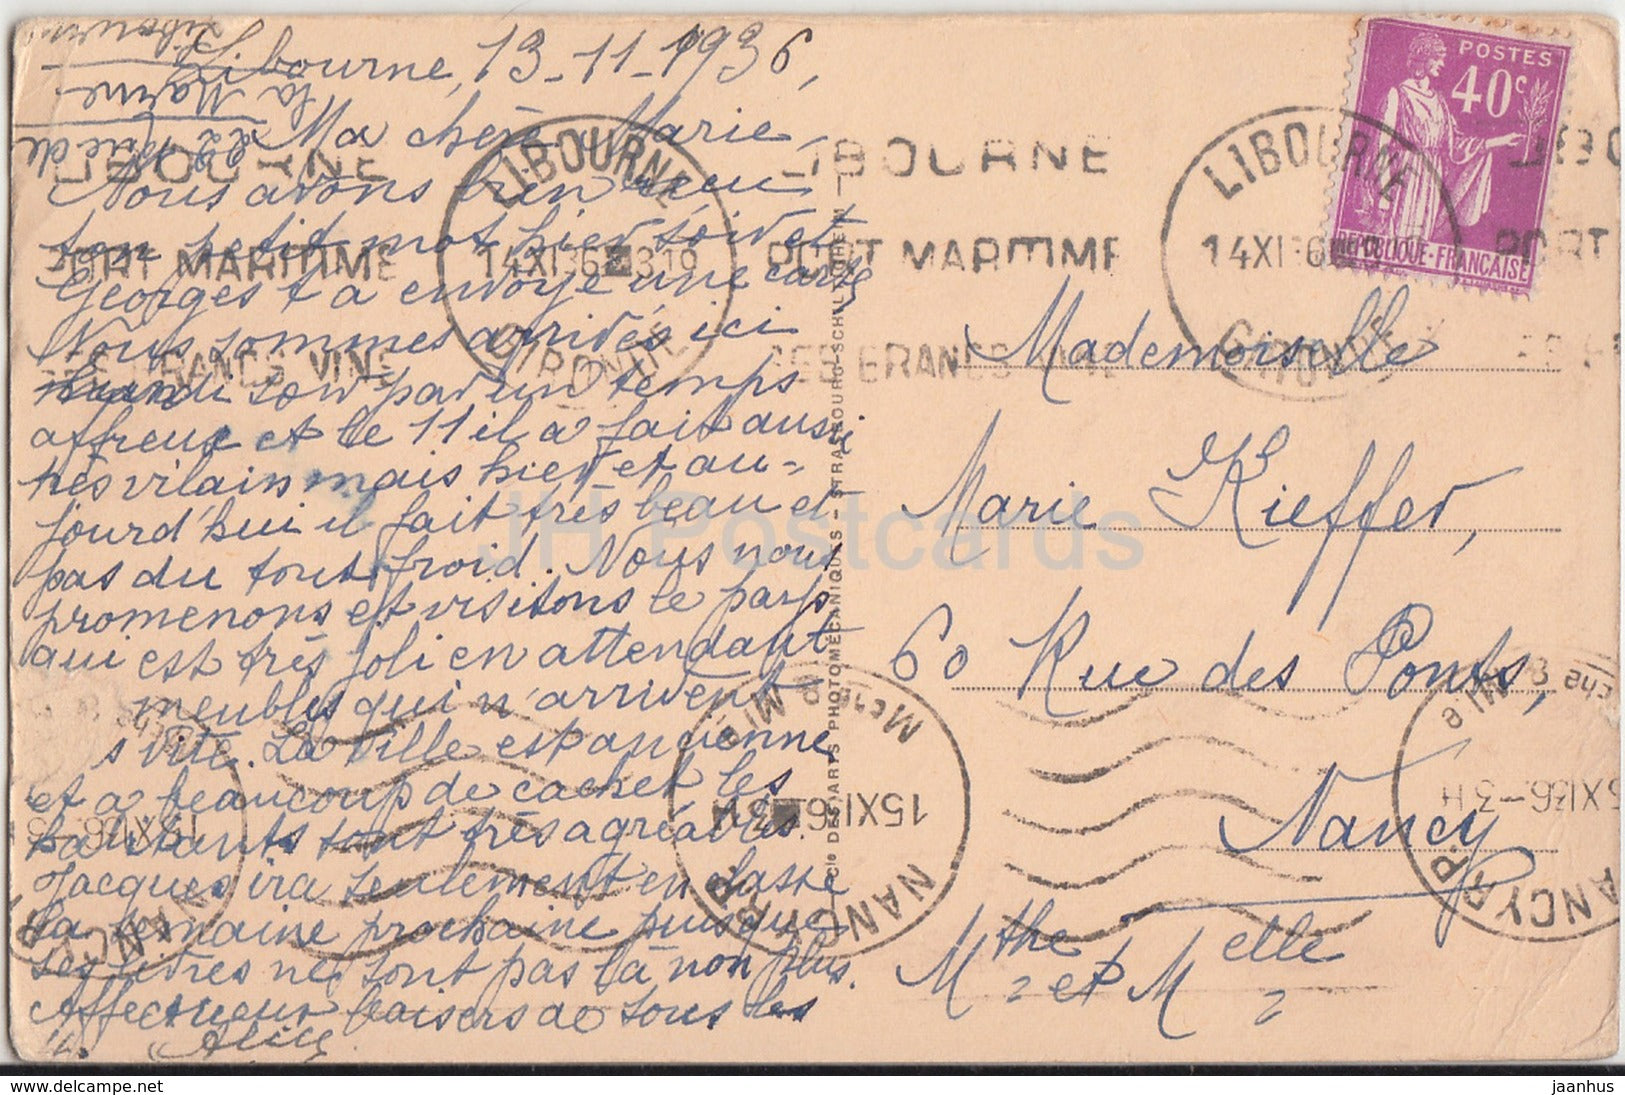 Libourne, 13-11-1936,
Ma chère Marie,
Nous avons bien reçu
ton petit mot hier soir et
Georges t'a envoyé une carte
Nous sommes arrivés ici
mardi soir par un temps
affreux et le 11 il a fait aussi
très vilain mais hier et au-
jourd'hui il fait très beau et
pas du tout froid. Nous nous
promenons et visitons le pays
qui est très joli en attendant
meubles qui n'arrivent
s vite. La ville est ancienne
et a beaucoup de cachet les
habitants sont très agréables.
Jacques ira seulement en classe
la semaine prochaine puisque
ses livres ne sont pas là non plus.
Affectueux baisers de tous les
4. Alice
22 Rue de
la Marne
Libourne
POSTES
40c
REPUBLIQUE-FRANÇAISE
LIBOURNE
PORT MARITIME
SES GRANDS VINS
LIBOURNE
14 XI 36 1319
GIRONDE
LIBOURNE
PORT MARITIME
SES GRANDS VINS
LIBOURNE
14 XI 36
GIRONDE
PORT
Mademoiselle
Marie Kieffer,
60 Rue des Ponts,
Nancy
Mthe et Melle
Cie DES ARTS PHOTOMÉCANIQUES - STRASBOURG-SCHILTIGHEIM
NANCY R.P.
15 XI 36
Mthe & Mlle
NANCY R.P.
15 XI 36 - 3 H
NANCY R.P.
15 XI 36
JH Postcards
To see the actual publication please follow the link above
jaanhus